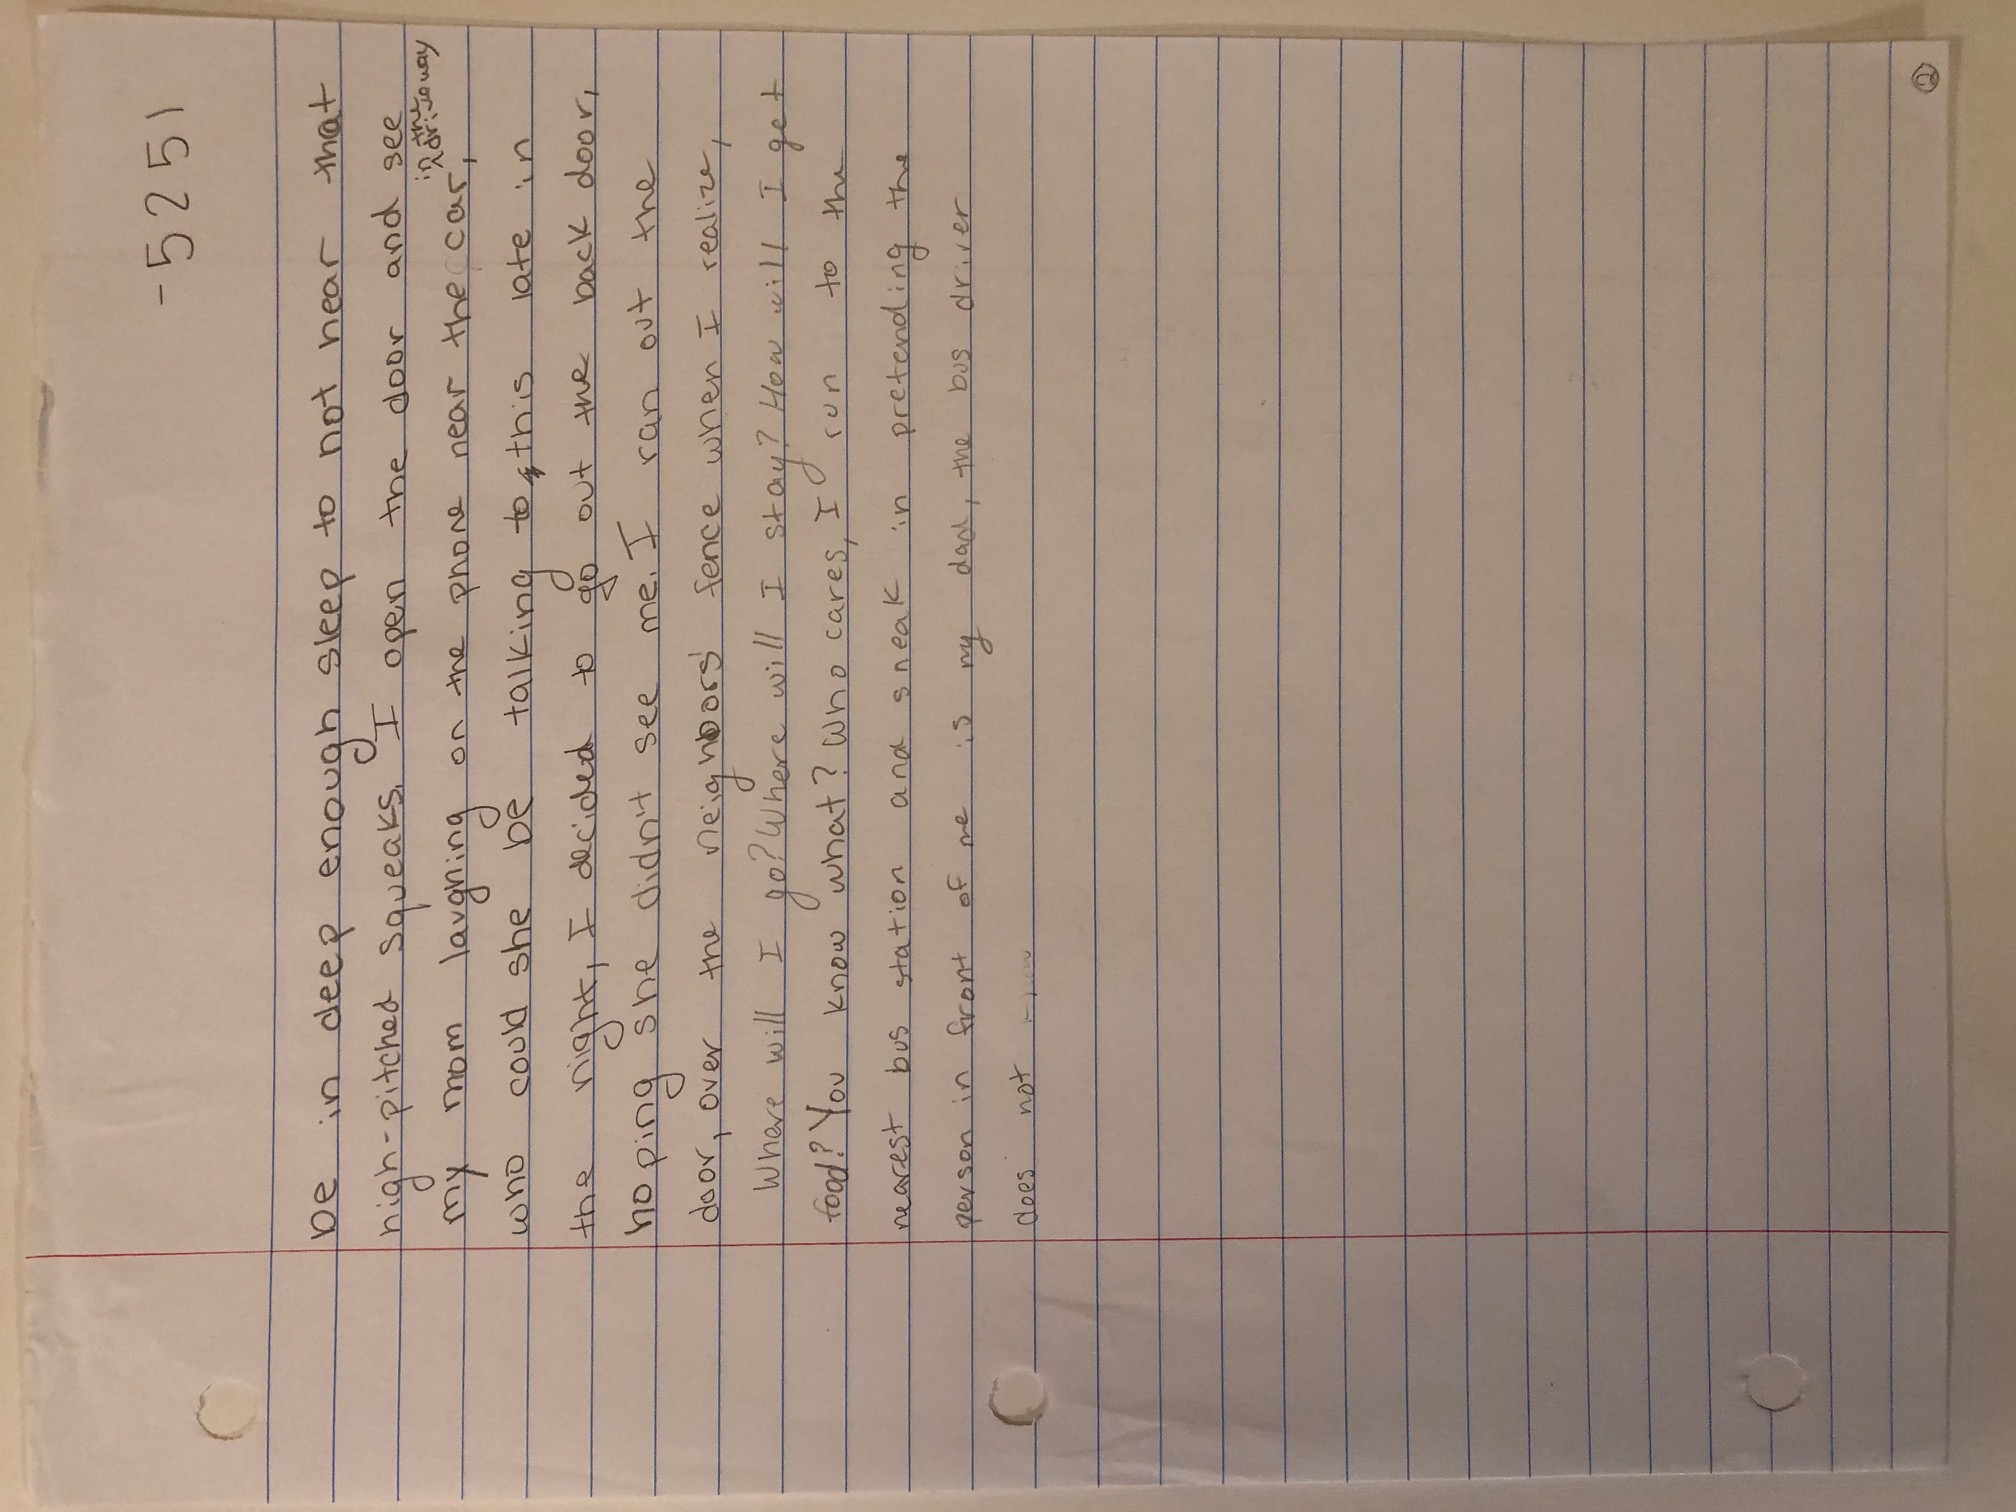 -5251
be in deep enough sleep to not hear that
high-pitched squeaks. I open the door and see
in the
driveway
my mom laughing on the phone near the car,
who could she be talking to this late in
the night, I decided to go out the back door,
hoping she didn't see me. I ran out the
door, over the neighbors' fence when I realize,
Where will I go? Where will I stay? How will I get
food? You know what? Who cares, I run to the
nearest bus station and sneak in pretending the
person in front of me is my dad, the bus driver
does not
2